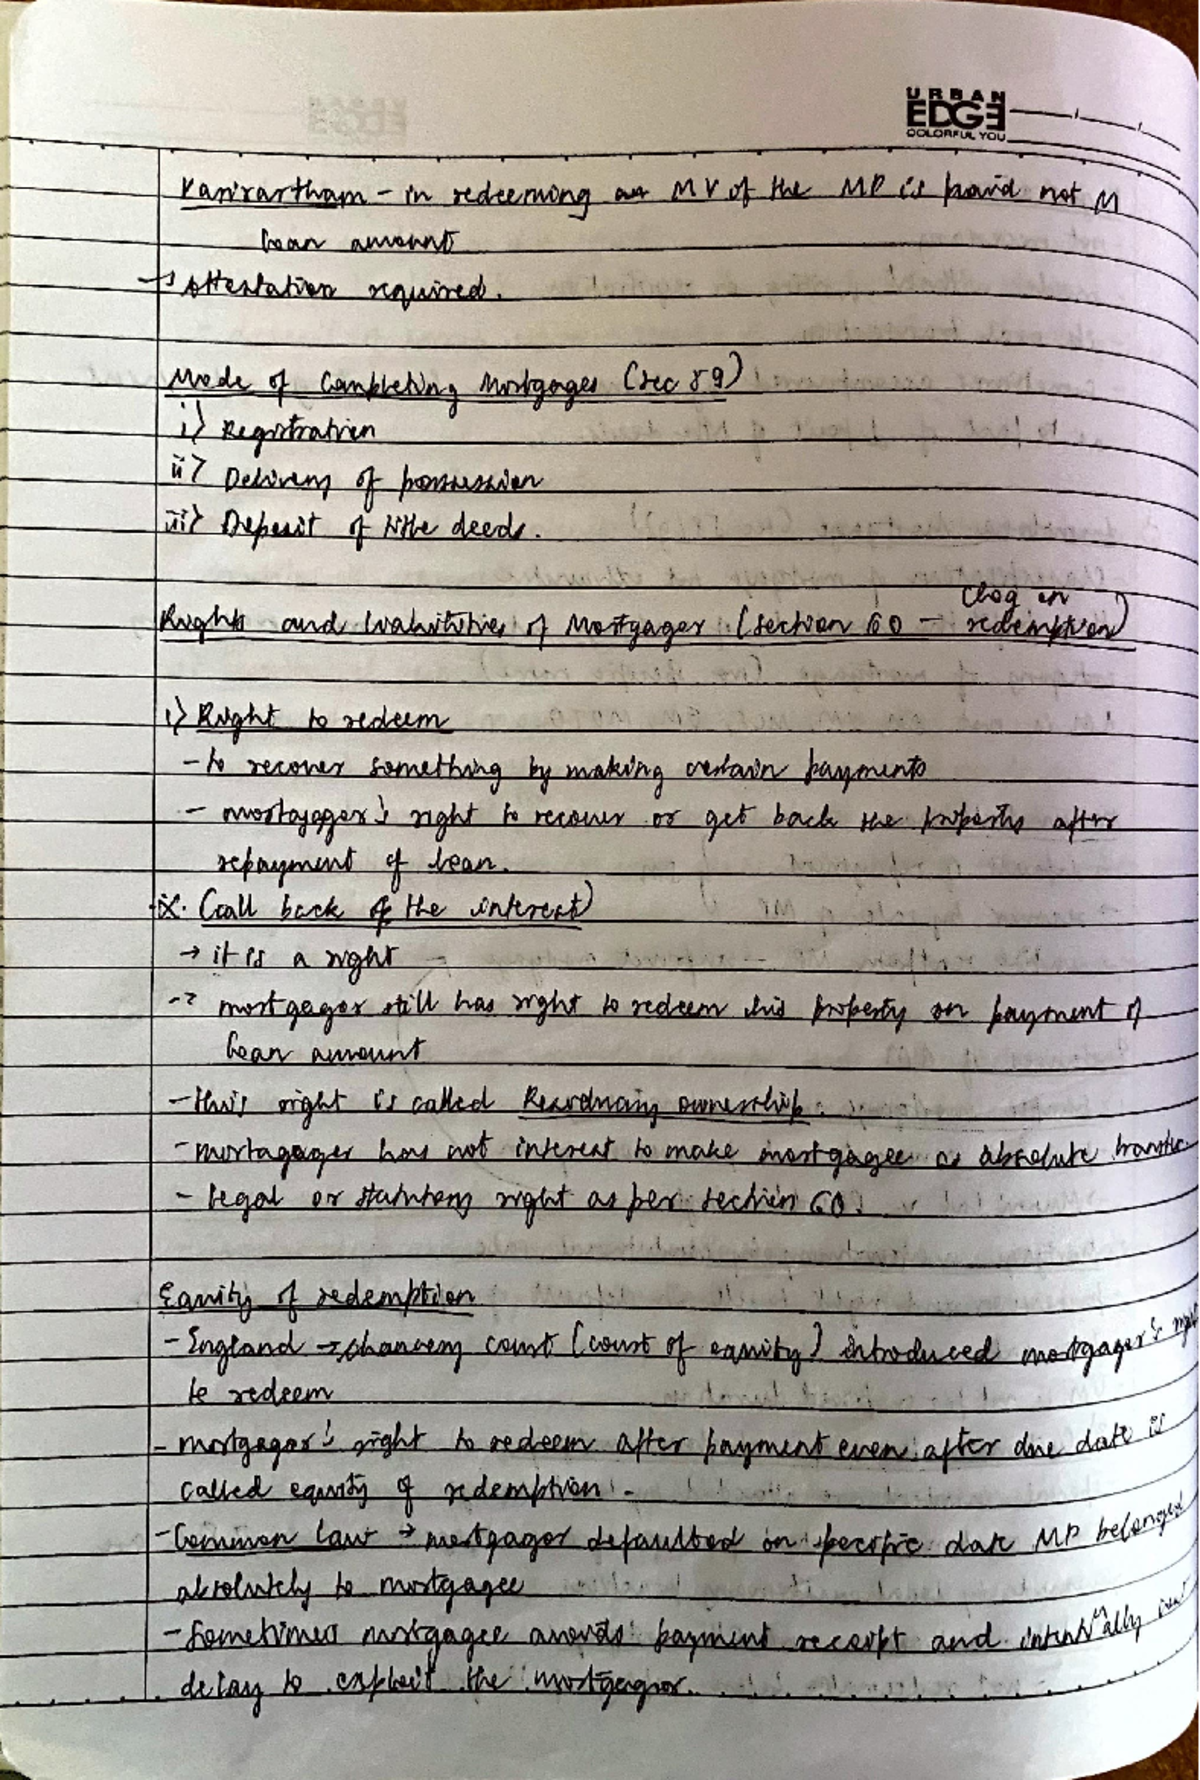 URBAN
EDGE
COLORFUL YOU
Kanirartham - in redeeming MV of the MP is paid not M
loan amount
→ Attestation required.
Mode of Completing Mortgages (Sec 59)
i) Registration
ii) Delivery of possession
iii) Deposit of title deeds.
Clog on
Rights and Liabilities of Mortgager (section 60 - redemption)
i) Right to redeem
- to recover something by making certain payments
- mortgagor's right to recover or get back the property after
repayment of loan.
(call back of the interest)
→ it is a right
→ mortgagor still has right to redeem his property on payment of
loan amount
- this right is called Residuary ownership.
- mortagager has not interest to make mortgagee as absolute
- legal or statutory right as per section 60.
Equity of redemption
- England → chancery court [court of equity] introduced mortgager's
to redeem
- mortgagor's right to redeem after payment even after due date is
called equity of redemption.
- Common law → mortgagor defaulted on specific date MP belonged
absolutely to mortgagee
- Sometimes mortgagee avoids payment receipt and
delay to exploit the mortgagor.